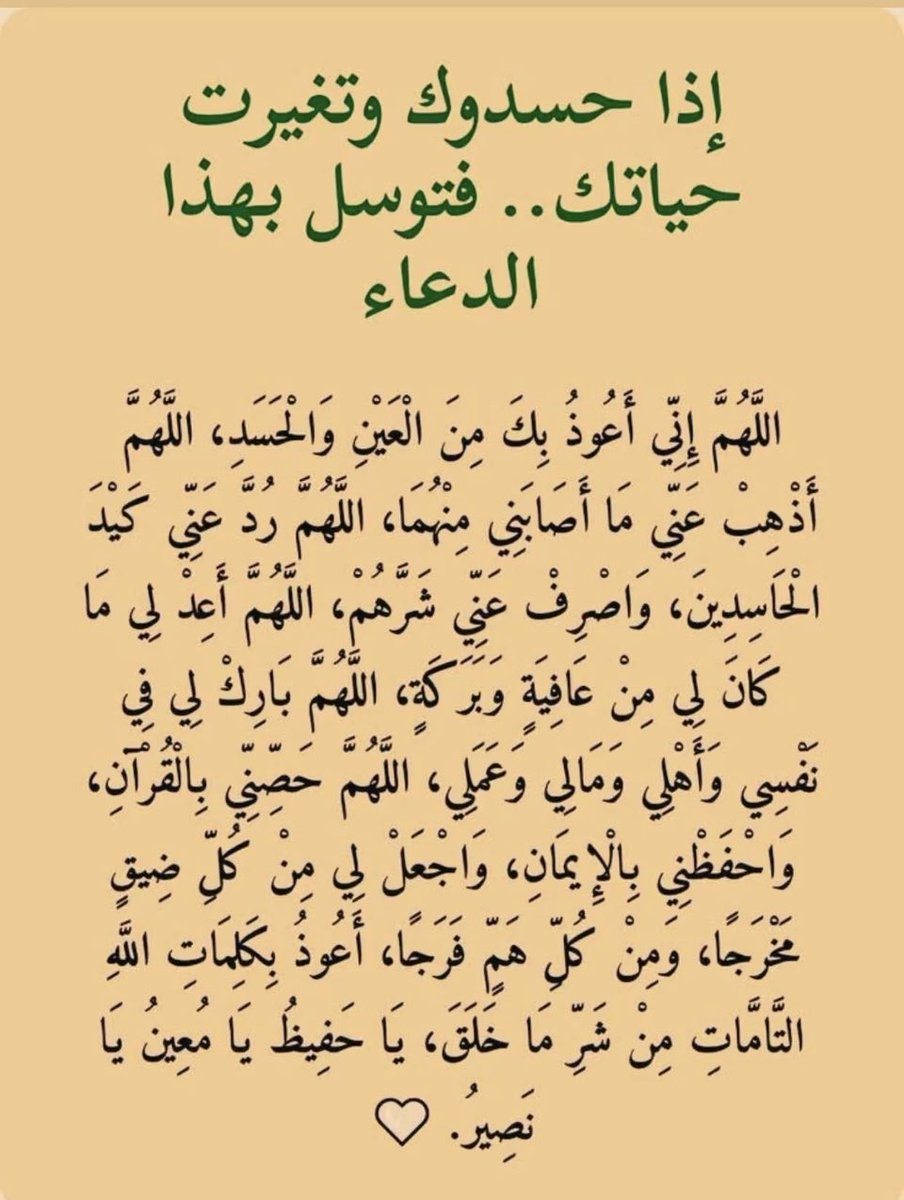 إذا حسدوك وتغيرت
حياتك.. فتوسل بهذا
الدعاء
اللَّهُمَّ إِنِّي أَعُوذُ بِكَ مِنَ الْعَيْنِ وَالْحَسَدِ، اللَّهُمَّ
أَذْهِبْ عَنِّي مَا أَصَابَنِي مِنْهُمَا، اللَّهُمَّ رُدَّ عَنِّي كَيْدَ
الْحَاسِدِينَ، وَاصْرِفْ عَنِّي شَرَّهُمْ، اللَّهُمَّ أَعِدْ لِي مَا
كَانَ لِي مِنْ عَافِيَةٍ وَبَرَكَةٍ، اللَّهُمَّ بَارِكْ لِي فِي
نَفْسِي وَأَهْلِي وَمَالِي وَعَمَلِي، اللَّهُمَّ حَصِّنِّي بِالْقُرْآنِ،
وَاحْفَظْنِي بِالْإِيمَانِ، وَاجْعَلْ لِي مِنْ كُلِّ ضِيقٍ
مَخْرَجًا، وَمِنْ كُلِّ هَمٍّ فَرَجًا، أَعُوذُ بِكَلِمَاتِ اللَّهِ
التَّامَّاتِ مِنْ شَرِّ مَا خَلَقَ، يَا حَفِيظُ يَا مُعِينُ يَا
نَصِيرُ. ♡